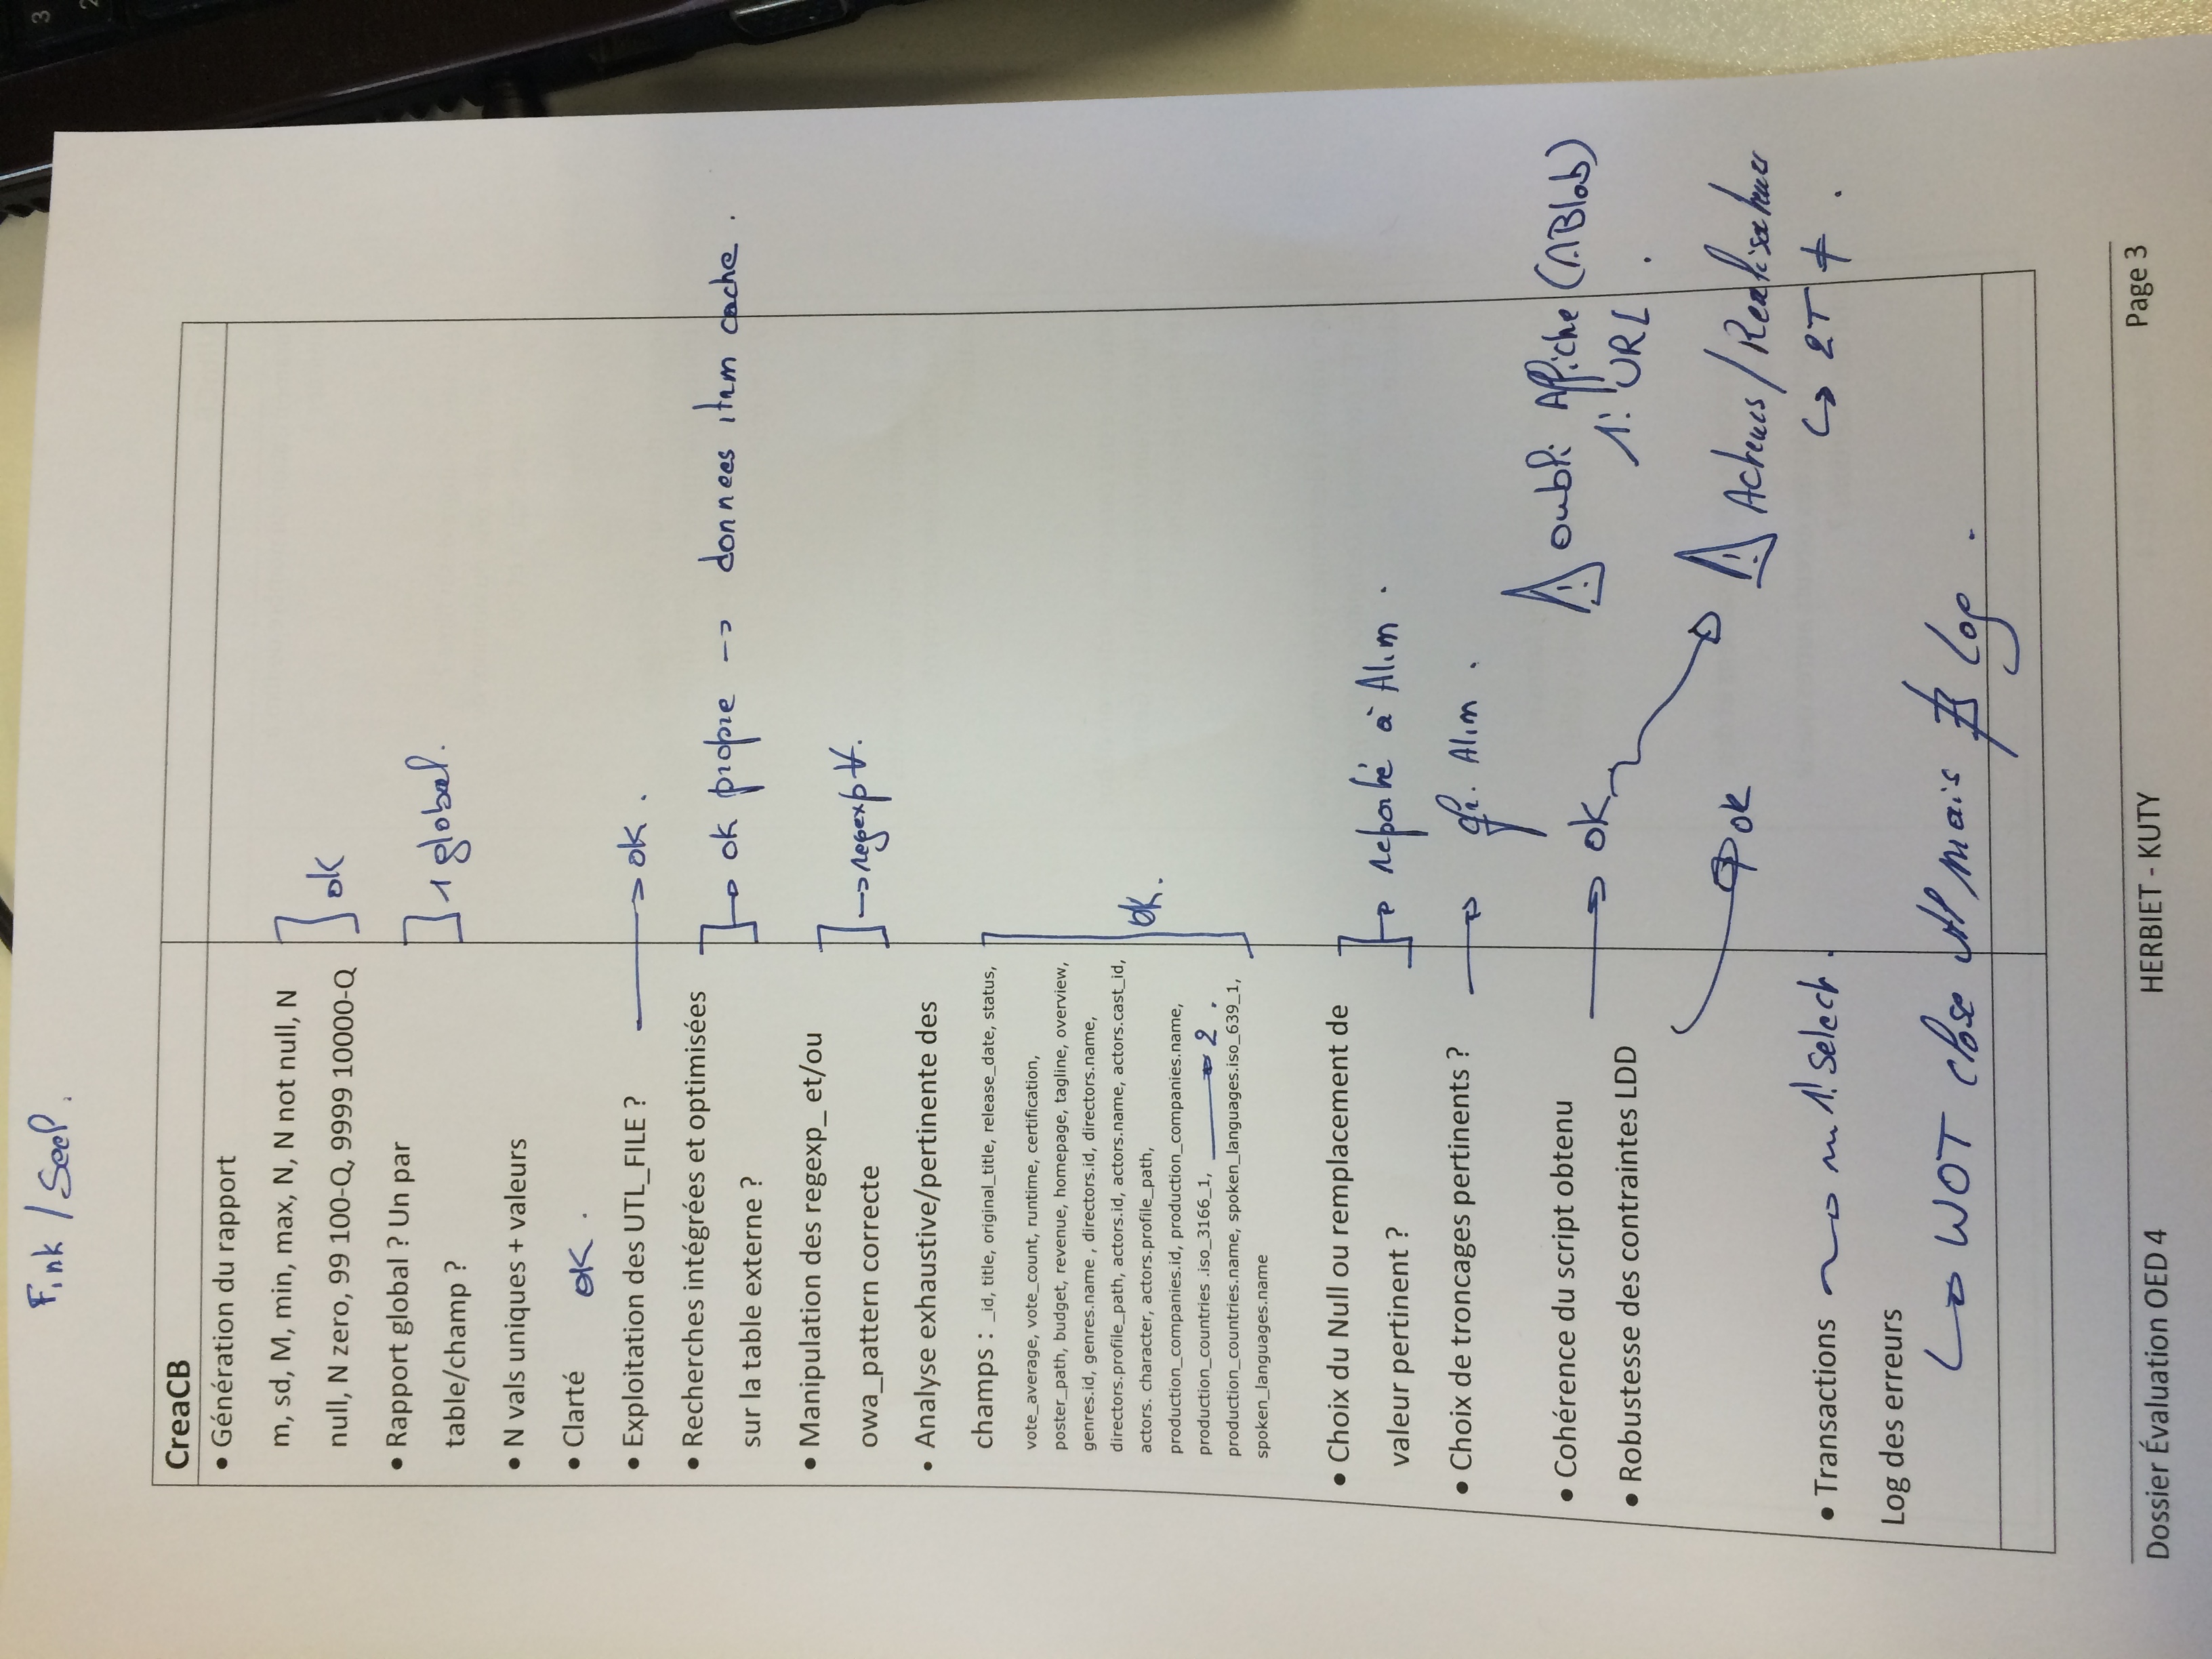 Fink / Seel.
CreaCB
• Génération du rapport
m, sd, M, min, max, N, N not null, N
null, N zero, 99 100-Q, 9999 10000-Q
ok
• Rapport global ? Un par
table/champ ?
1 global.
• N vals uniques + valeurs
• Clarté OK .
• Exploitation des UTL_FILE ? → ok .
• Recherches intégrées et optimisées
sur la table externe ?
→ ok propre → donnees cache .
• Manipulation des regexp_ et/ou
owa_pattern correcte
→ regexp ∀.
• Analyse exhaustive/pertinente des
champs : _id, title, original_title, release_date, status,
vote_average, vote_count, runtime, certification,
poster_path, budget, revenue, homepage, tagline, overview,
genres.id, genres.name , directors.id, directors.name,
directors.profile_path, actors.id, actors.name, actors.cast_id,
actors. character, actors.profile_path,
ok.
production_companies.id, production_companies.name,
production_countries .iso_3166_1, → 2 .
production_countries.name, spoken_languages.iso_639_1,
spoken_languages.name
• Choix du Null ou remplacement de
valeur pertinent ?
→ reporté à Alim .
• Choix de troncages pertinents ? → Alim .
• Cohérence du script obtenu → ok
⚠ oubli Affiche (1 Blob)
1! URL .
• Robustesse des contraintes LDD
→ ok
⚠ Acteurs / Realisateurs
↳ 2T ≠ .
• Transactions → 1! select .
Log des erreurs
↳ WOT close mais ∄ Log .
Dossier Évaluation OED 4 HERBIET - KUTY Page 3